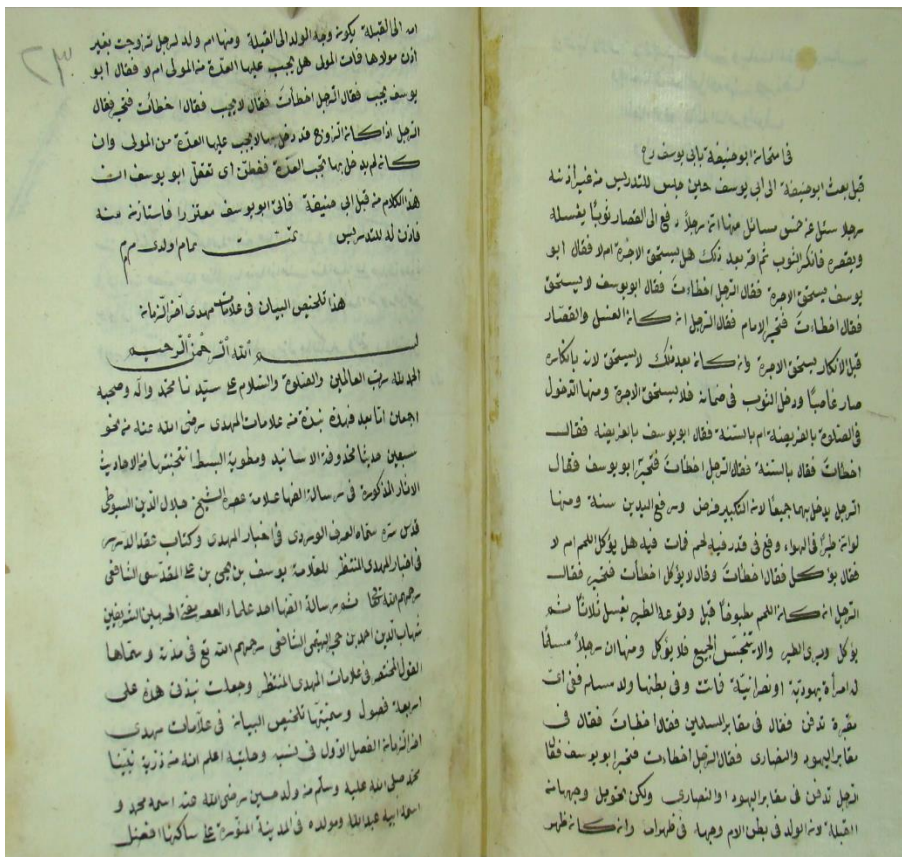 فى امتحانه ابو حنيفة بابى يوسف ره
قيل بعث ابو حنيفة الى ابى يوسف حين جلس للتدريس من غير اذنه
رجلا سئل عن خمس مسائل منها انه رجلا دفع الى القصار ثوبًا يغسله
ويقصره فانكر الثوب ثم اقر بعد ذلك هل يستحق الاجرة ام لا فقال ابو
يوسف يستحق الاجرة فقال الرجل اخطأت فقال ابو يوسف لا يستحق
فقال اخطأت فتحير الامام فقال الرجل ان كانه الغسل والقصار
قبل الانكار يستحق الاجرة وان كانه بعد ذلك لا يستحق لانه بانكاره
صار غاصبًا ودخل الثوب فى ضمانه فلا يستحق الاجرة ومنها الدخول
فى الصلوة بالفريضة ام بالسنة فقال ابو يوسف بالفريضة فقال
اخطأت فقال بالسنة فقال الرجل اخطأت فتحير ابو يوسف فقال
الرجل يدخل بهما جميعًا لان التكبير فرض ورفع اليدين سنة ومنها
لو ان طيرًا فى الهواء وقع فى قدر فيه لحم فمات فيه هل يؤكل اللحم ام لا
فقال يؤكل فقال اخطأت وقال لا يؤكل اخطأت فتحير فقال
الرجل ان كانه اللحم مطبوخًا قبل وقوعه الطير يغسل ثلاثًا ثم
يؤكل ويرمى الطير والا يتنجس الجميع فلا يؤكل ومنها ان رجلاً مسلمًا
له امرأة يهودية او نصرانية فماتت وفى بطنها ولد مسلم ففى اى
مقبرة تدفن فقال فى مقابر المسلمين فقال اخطأت فقال فى
مقابر اليهود والنصارى فقال الرجل اخطأت فتحير ابو يوسف فقال
الرجل تدفن فى مقابر اليهود او النصارى ولكن تحويل وجهها من
القبلة لانه الولد فى بطن الام وجهه فى ظهر امه وان كانه ظهر
امه الى القبلة يكون وجه الولد الى القبلة ومنها ام ولد لرجل تزوجت بغير
اذن مولاها فمات المولى هل يجب عليها العدة من المولى ام لا فقال ابو
يوسف يجب فقال الرجل اخطأت فقال لا يجب فقال اخطأت فتحير فقال
الرجل اذا كانه الزوج قد دخل بها لا يجب عليها العدة من المولى وان
كانه لم يدخل بها يجب العدة ففطن اى تعقل ابو يوسف ان
هذا الكلام من قبل ابى حنيفة فاتى ابو يوسف معتذرا فاستاذنه منه
فاذن له للتدريس تمت تمام اولدى
هذا تلخيص البيان فى علامات مهدى آخر الزمان
بسم الله الرحمن الرحيم
الحمد لله رب العالمين والصلوة والسلام على سيدنا محمد واله وصحبه
اجمعين اما بعد فهذه نبذة من علامات المهدى رضى الله عنه من نحو
سبعين حديثا محذوفة الاسانيد ومطوية البسط انتخبتها من الاحاديث
الاثار المذكورة فى رسالة الفها علامة عصره الشيخ جلال الدين السيوطى
قدس سره سماه العرف الوردى فى اخبار المهدى وكتاب عقد الدرر
فى اخبار المهدى المنتظر للعلامة يوسف بن يحيى بن على المقدسى الشافعى
رحمهم الله تعالى ثم رسالة الفها احد علماء العصر بشيخ الحرمين الشريفين
شهاب الدين احمد بن حجر الهيتمى الشافعى رحمهم الله تع فى مدته وسماها
القول المختصر فى علامات المهدى المنتظر وجعلت نبذتى هذه على
اربعة فصول وسميتها تلخيص البيان فى علامات مهدى
اخر الزمان الفصل الاول فى نسبه وحليته اعلم انه من ذرية نبينا
محمد صلى الله عليه وسلم من ولد حسين رضى الله عنه اسمه محمد و
اسم ابيه عبد الله ومولده فى المدينة المنورة على ساكنها افضل